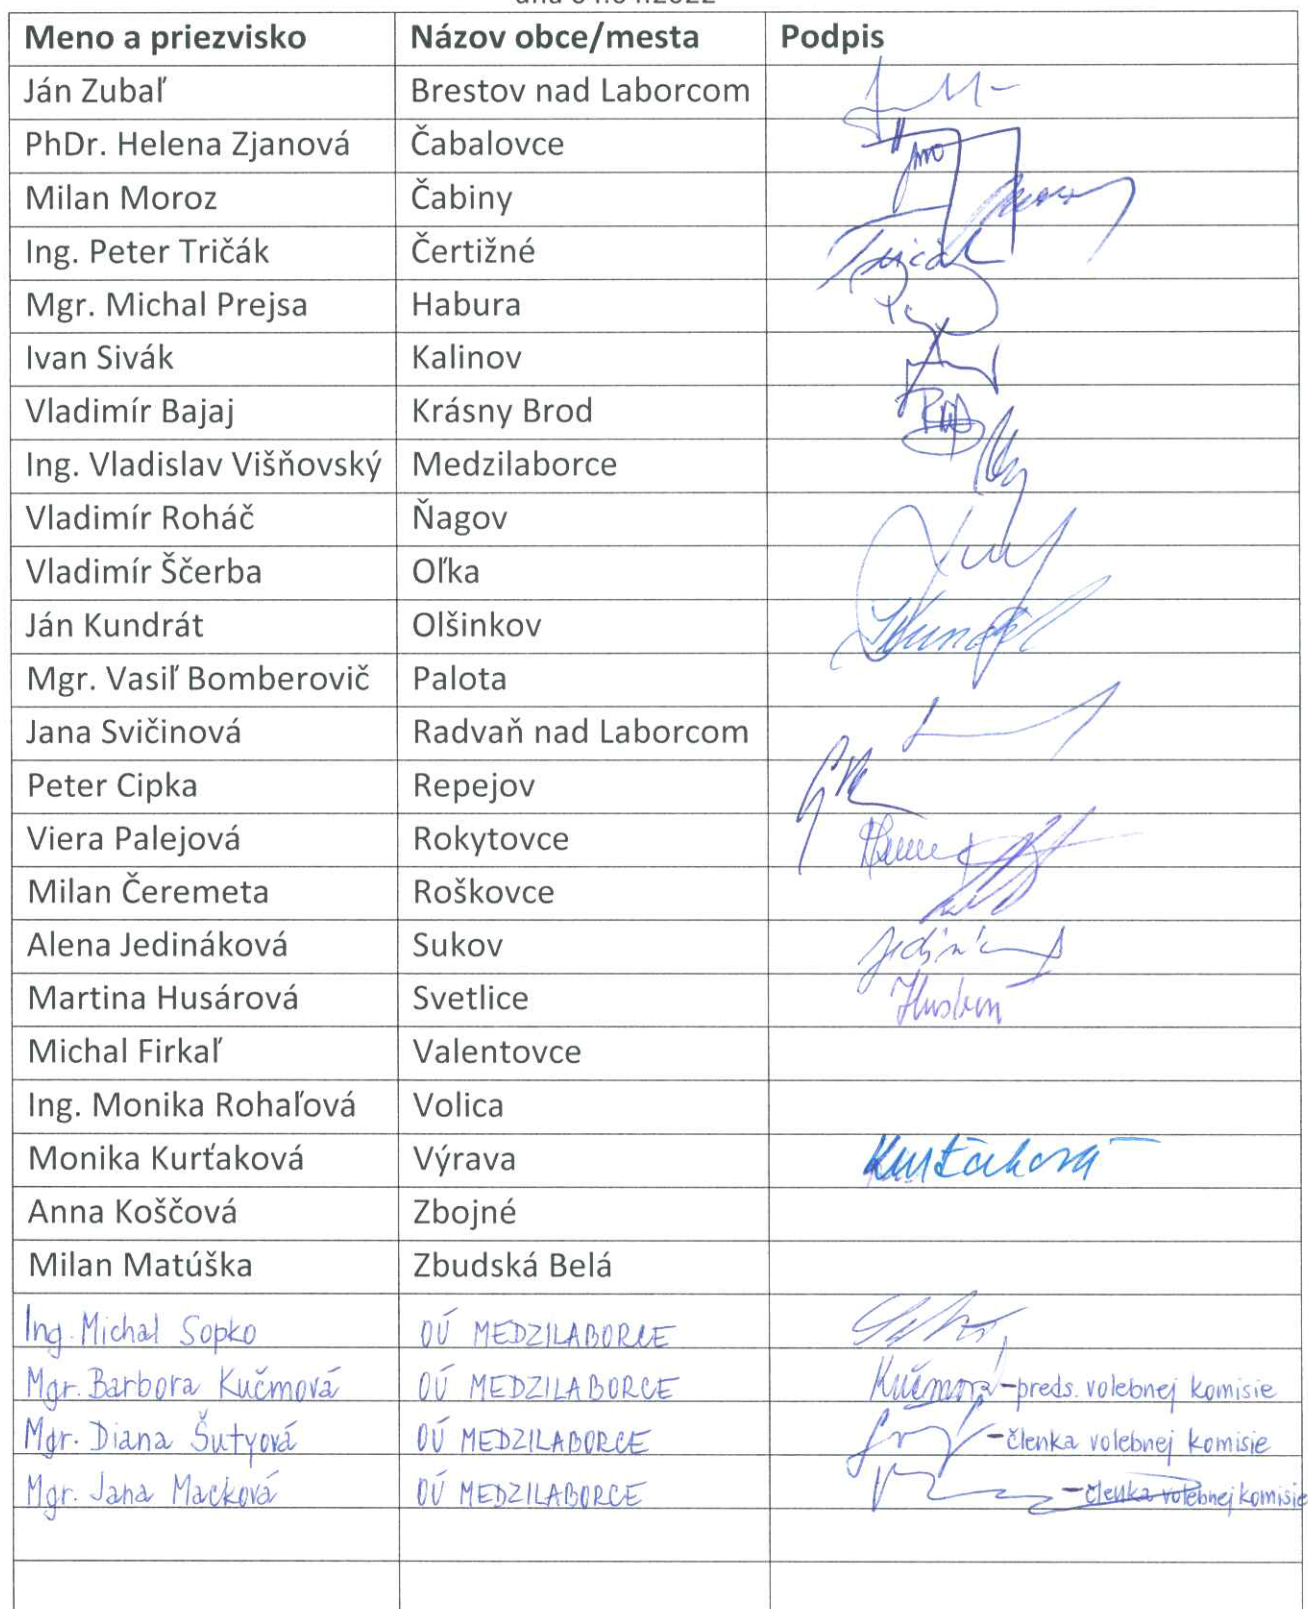 Meno a priezvisko Názov obce/mesta Podpis
Ján Zubaľ Brestov nad Laborcom
PhDr. Helena Zjanová Čabalovce
Milan Moroz Čabiny
Ing. Peter Tričák Čertižné Tričák
Mgr. Michal Prejsa Habura
Ivan Sivák Kalinov
Vladimír Bajaj Krásny Brod
Ing. Vladislav Višňovský Medzilaborce
Vladimír Roháč Ňagov
Vladimír Ščerba Oľka
Ján Kundrát Olšinkov
Mgr. Vasiľ Bomberovič Palota
Jana Svičinová Radvaň nad Laborcom
Peter Cipka Repejov
Viera Palejová Rokytovce
Milan Čeremeta Roškovce
Alena Jedináková Sukov
Martina Husárová Svetlice
Michal Firkaľ Valentovce
Ing. Monika Rohaľová Volica
Monika Kurťaková Výrava Kurťaková
Anna Koščová Zbojné
Milan Matúška Zbudská Belá
Ing. Michal Sopko OÚ MEDZILABORCE
Mgr. Barbora Kučmová OÚ MEDZILABORCE Kučmová - preds. volebnej komisie
Mgr. Diana Šutyová OÚ MEDZILABORCE - členka volebnej komisie
Mgr. Jana Macková OÚ MEDZILABORCE - členka volebnej komisie